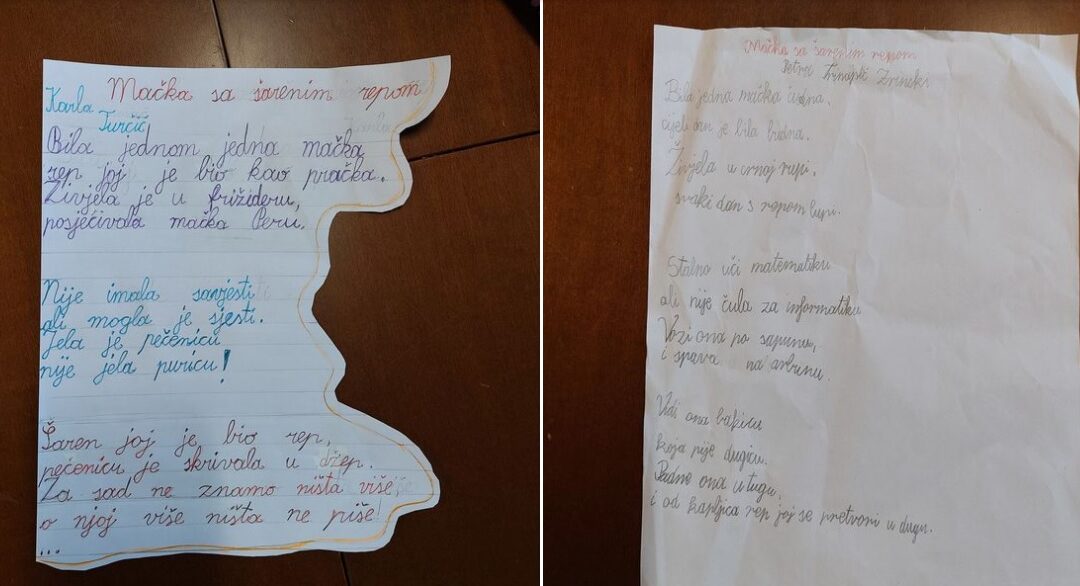 Mačka sa šarenim repom
Karla
Turčić
Bila jednom jedna mačka
rep joj je bio kao pračka.
Živjela je u frižideru,
posjećivala mačka Peru.
Nije imala savjesti
ali mogla je sjesti.
Jela je pečenicu
nije jela puricu!
Šaren joj je bio rep,
pečenicu je skrivala u džep.
Za sad ne znamo ništa više,
o njoj više ništa ne piše!
...
Mačka sa šarenim repom
Petra Zrinski
Bila jedna mačka čudna,
cijeli dan je bila budna.
Živjela u crnoj rupi,
svaki dan s repom lupi.
Stalno uči matematiku
ali nije čula za informatiku
Vozi ona po sapunu,
i spava na
Vidi ona bakicu
koja pije dugicu.
Padne ona u tugu,
i od kapljica rep joj se pretvori u dugu.